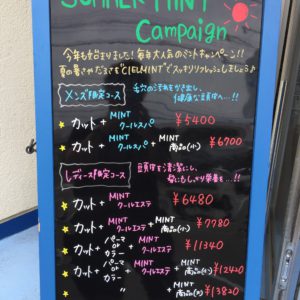 SUMMER MINT
Campaign
今年も始まりました！毎年大人気のミントキャンペーン！！
夏の暑さやだるさも"CIELMINT"でスッキリリフレッシュしましょう♪
メンズ限定コース
毛穴の汚れをかき出し、
健康な頭皮へ…!!
カット + MINT クールスパ ¥5400
カット + MINT クールスパ + MINT 商品(小) ¥6700
レディース限定コース
頭皮を清潔にし、
髪にもしっかり栄養を…!!
カット + MINT クールエステ ¥6480
カット + MINT クールエステ + MINT 商品(小) ¥7780
カット + パーマ or カラー + MINT クールエステ ¥11340
カット + パーマ or カラー + MINT クールエステ + MINT 商品(小) ¥12420
〃 + MINT ¥13820